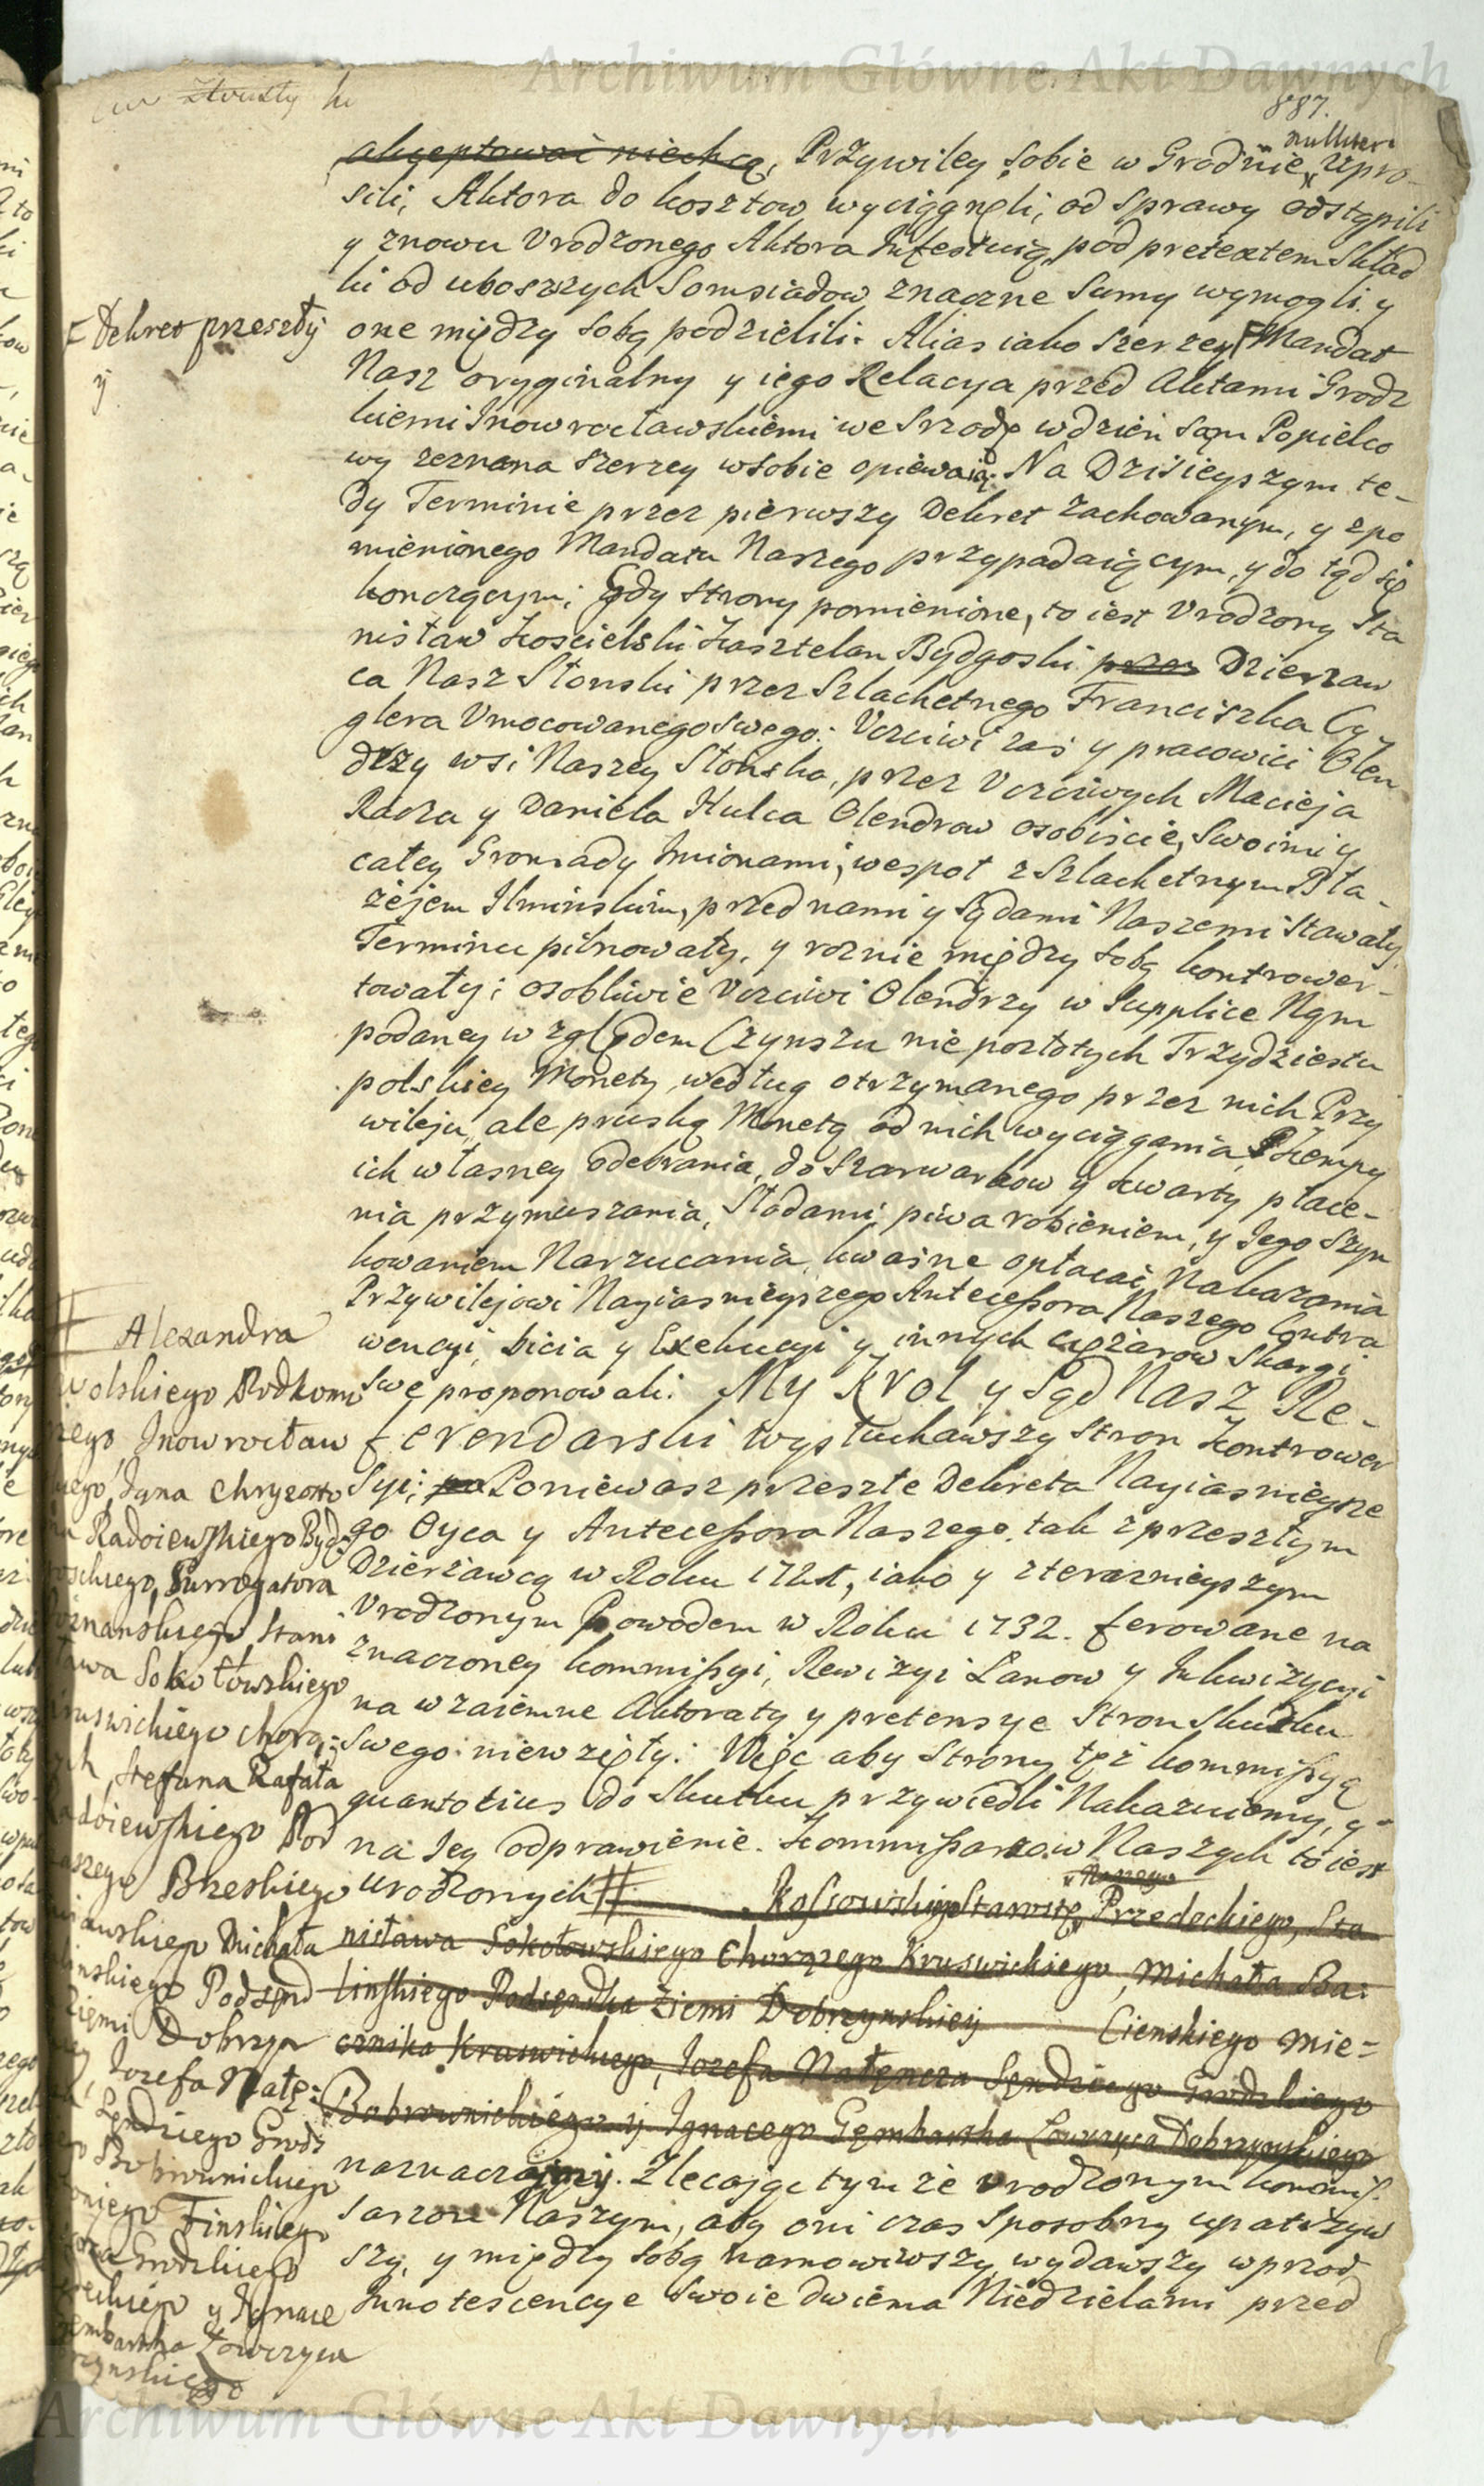 Archiwum Główne Akt Dawnych
887.
akceptować niechcą, Przywiley sobie w Grodnie nulliter Upro-
sili, Aktora do kosztow wyciągnęli, od Sprawy odstąpili
y znowu Vrodzonego Aktora Infestuią, pod pretextem Skład
ki od uboszzych Somsiadow znaczne Sumy wymogli y
one między sobą podzielili. Alias iako szerzey Mandat
Nasz oryginalny y iego Relacya przed Aktami Grodz
kiemi Inowrocławskiemi we Srzodę w dzień sąm Popielco
wy zeznana szerzey w sobie opiewaią. Na Dzisieyszym te-
dy Terminie przez pierwszy Dekret zachowanym, y z po
mienionego Mandatu Naszego przypadaiącym, y do tąd się
konczącym; Gdy strony pomienione, to iest Vrodzony Sta
nisław Kościelski Kasztelan Bydgoski przez Dzierzaw
ca Nasz Słonski przez Szlachetnego Franciszka Cy
glera Vmocowanego Swego: Vczciwi zaś y pracowici Olen
drzy wsi Naszey Słonska, przez Vczciwych Macieja
Radza y Daniela Hulca Olendrow osobiscie, Swoimi y
całey Gromady Imionami, wespoł z Szlachetnym Bła-
żejem Ilminskim, przed nami y Sądami Naszemi Stawały,
Terminu pilnowały, y roznie między sobą kontrower-
towały; osobliwie Vczciwi Olendrzy w Supplice Nąm
podaney względem Czynszu nie po złotych Trzydziestu
polskiey Monety, według otrzymanego przez nich Przy
wileju, ale pruską Monetą od nich wyciągania, Kempy
ich własney odebrania, do Szarwarkow y kwarty płace-
nia przymuszania, Słodami piwa robieniem, y Jego Szyn
kowaniem Narzucania, kwaśne opłacać Nakazania
Przywilejowi Nayiasnieyszego Antecessora Naszego Contra
wencyi, bicia y Exekucyi y innych ciężarow Skargi
Swe proponowali: My Krol y Sąd Nasz Re-
ferendarski wysłuchawszy Stron kontrower
Syi; Poniewasz przeszłe Dekreta Nayiasnieysze
go Oyca y Antecessora Naszego, tak z przeszłym
Dzierżawcą w Roku, iako y z teraznieyszym
Vrodzonym Powodem w Roku 1732. ferowane na
znaczoney kommissyi, Rewizyi Łanow y Inkwizycyi
na wzaiemne Aktoraty y pretensye Stron Skutku
swego niewzięły: Więc aby Strony tęż kommissyą
quantotius do Skutku przywiedli Nakazuiemy, y
na Jey odprawienie. Kommissarzow Naszych to iest
urodzonych # Kossowskiego Starostę Naszego Przedeckiego, Sta
nisława Sokołowskiego Chorązego Kruswickiego, Michała Ba:
linskiego Podsędka Ziemi Dobrzynskiey Cienskiego Mie=
cznika Kruswickiego, Jozefa Nałęncza Sędziego Grodzkiego
Bobrownickiego y Ignacego Gembarzka Łowczyca Dobrzynskiego
naznaczamy. Zlecając tym że vrodzonym kommis
sarzom Naszym, aby oni czas sposobny upatrzyw
szy, y między sobą namowiwszy, wydawszy wprzod
Innotescencye Swoie dwiema Niedzielami przed
Dekret przeszły
y
# Alexandra
Wolskiego Podkomo
rzego Inowrocław
skiego, Jąna Chryzosto
ma Radoiewskiego Byd:
goskiego, Surrogatora
Poznanskiego, Stani
sława Sokołowskiego
Kruswickiego Chorą:
Stefana Rafała
Radoiewskiego Pod
czaszego Brzeskiego
Kujawskiego Michała
Podsęnd
Ziemi Dobrzyn
Jozefa Nałę:
Sędziego Grodz
Bobrownickiego
Finskiego
Grodzkiego
y Ignace
Gembarzka Łowczyca
Dobrzynskiego
Archiwum Główne Akt Dawnych